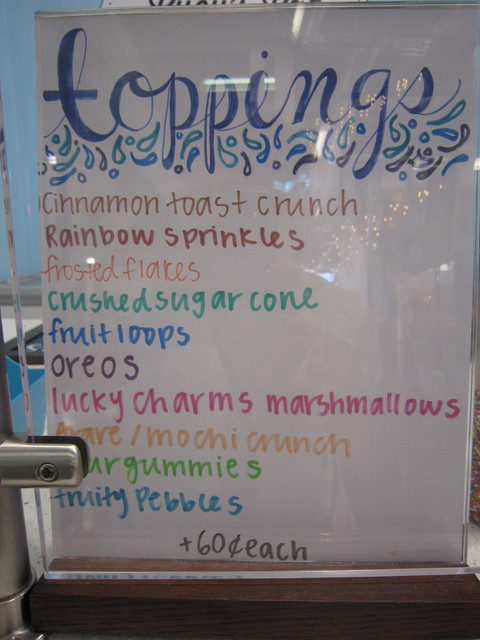 toppings
cinnamon toast crunch
Rainbow sprinkles
frosted flakes
crushed sugar cone
fruit loops
oreos
lucky charms marshmallows
/mochi crunch
gummies
fruity Pebbles
+60¢ each